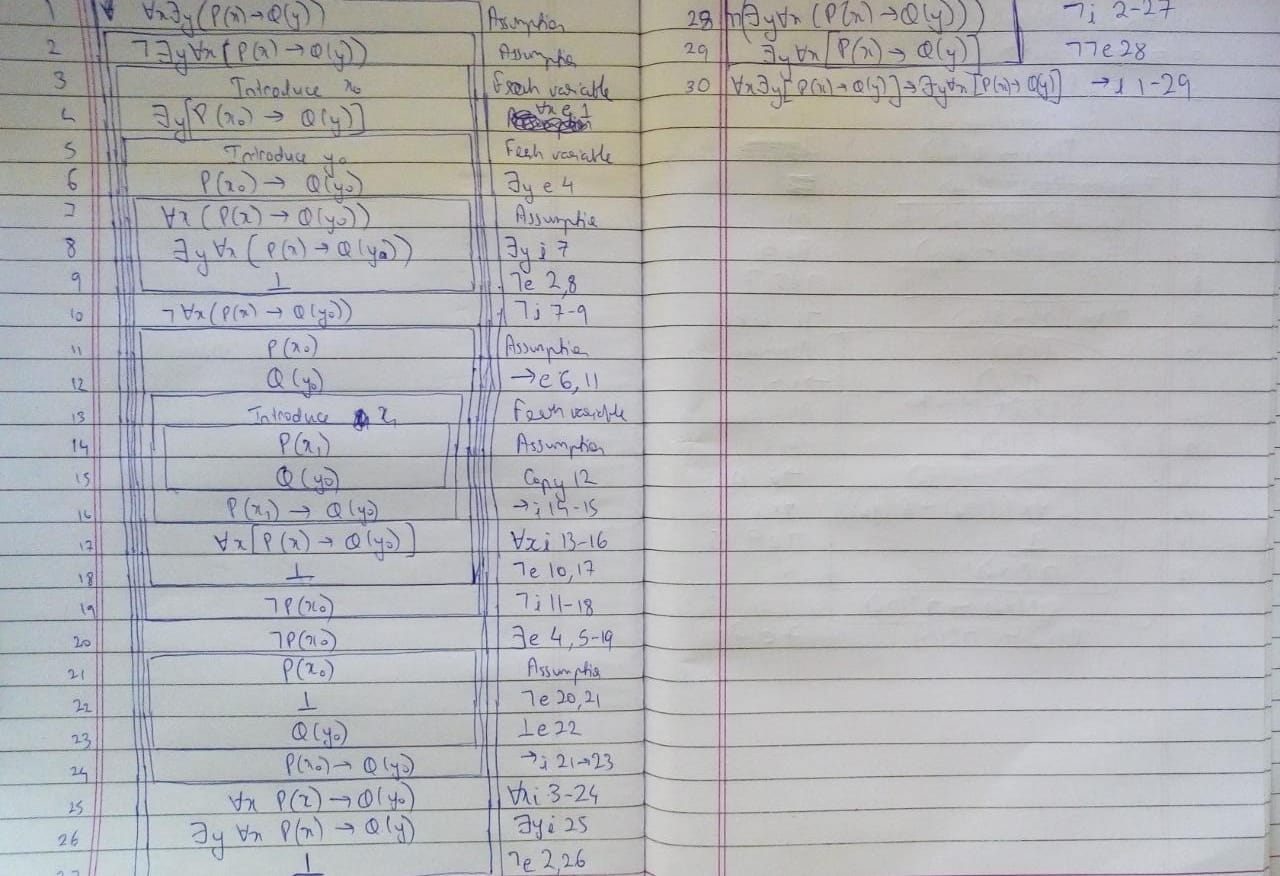 1 ∀x∃y(P(x)→Q(y)) Assumption
2 ¬∃y∀x(P(x)→Q(y)) Assumption
3 Introduce x₀ Fresh variable
4 ∃y[P(x₀) → Q(y)] ∀x e 1
5 Introduce y₀ Fesh variable
6 P(x₀) → Q(y₀) ∃y e 4
7 ∀x (P(x) → Q(y₀)) Assumption
8 ∃y ∀x (P(x) → Q(y)) ∃y i 7
9 ⊥ ¬e 2,8
10 ¬∀x(P(x) → Q(y₀)) ¬i 7-9
11 P(x₀) Assumption
12 Q(y₀) →e 6, 11
13 Introduce x₁ Fesh variable
14 P(x₁) Assumption
15 Q(y₀) Copy 12
16 P(x₁) → Q(y₀) →i 14-15
17 ∀x[P(x) → Q(y₀)] ∀xi 13-16
18 ⊥ ¬e 10,17
19 ¬P(x₀) ¬i 11-18
20 ¬P(x₀) ∃e 4, 5-19
21 P(x₀) Assumption
22 ⊥ ¬e 20,21
23 Q(y₀) ⊥e 22
24 P(x₀) → Q(y₀) →i 21→23
25 ∀x P(x) → Q(y₀) ∀xi 3-24
26 ∃y ∀x P(x) → Q(y) ∃yi 25
27 ⊥ ¬e 2,26
28 ¬(∃y∀x (P(x) → Q(y))) ¬i 2-27
29 ∃y∀x [P(x) → Q(y)] ¬¬e 28
30 ∀x∃y[P(x)→Q(y)]→∃y∀x[P(x)→Q(y)] →i 1-29